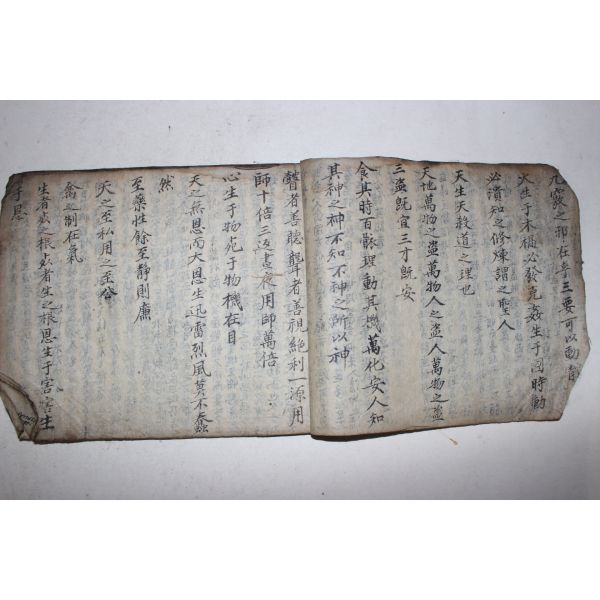 九竅之邪在乎三要可以動靜
火生于木禍必發克姦生于國時動
必潰知之修煉謂之聖人
天生天殺道之理也
天地萬物之盜萬物人之盜人萬物之盜
三盜旣宜三才旣安
食其時百骸理動其機萬化安人知
其神之神不知不神之所以神
瞽者善聽聾者善視絶利一源用
師十倍三返晝夜用師萬倍
心生于物死于物機在目
天之無恩而大恩生迅雷烈風莫不蠢
然
至樂性餘至靜則廉
天之至私用之至公
禽之制在氣
生者死之根死者生之根恩生于害害生
于恩